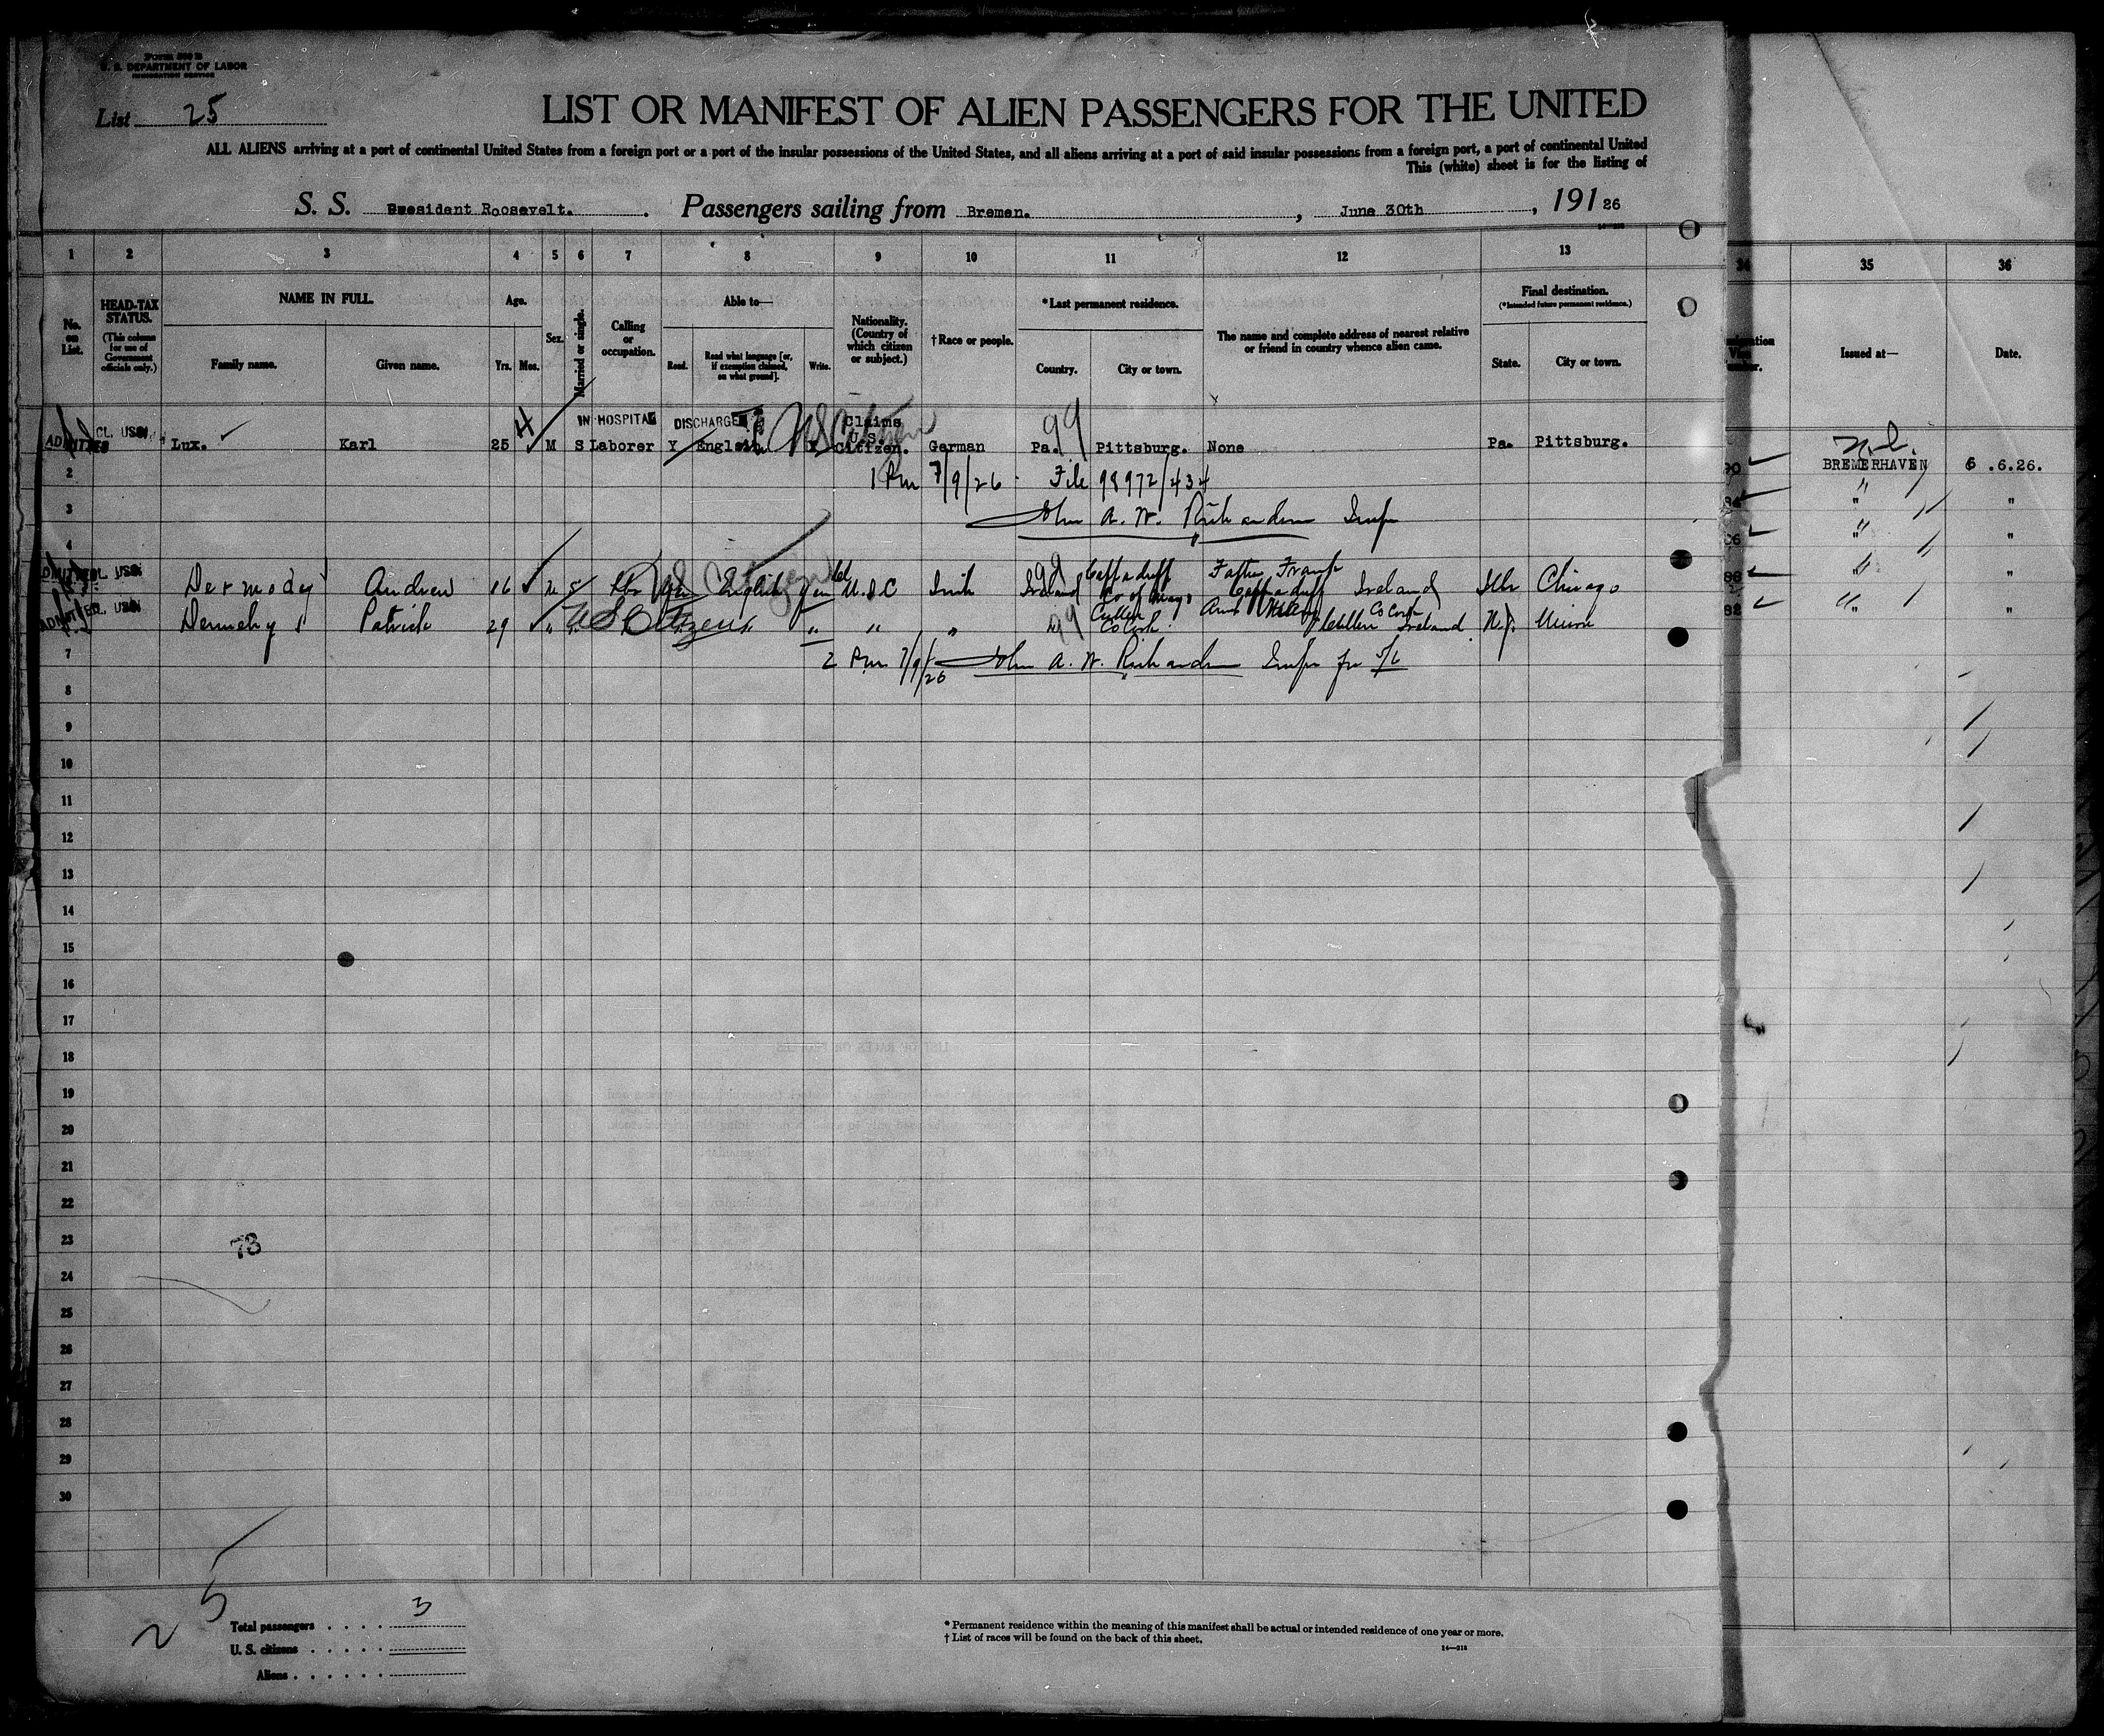 Form 500 B
U. S. DEPARTMENT OF LABOR
IMMIGRATION SERVICE
List 25
LIST OR MANIFEST OF ALIEN PASSENGERS FOR THE UNITED
ALL ALIENS arriving at a port of continental United States from a foreign port or a port of the insular possessions of the United States, and all aliens arriving at a port of said insular possessions from a foreign port, a port of continental United
This (white) sheet is for the listing of
S. S. President Roosevelt. Passengers sailing from Bremen. , June 30th , 191 26
1 2 3 4 5 6 7 8 9 10 11 12 13 35 36
No. on List.
HEAD-TAX STATUS.
(This column for use of Government officials only.)
NAME IN FULL.
Family name. Given name.
Age.
Yrs. Mos.
Sex.
Married or single.
Calling or occupation.
Able to—
Read. Read what language [or, if exemption claimed, on what ground]. Write.
Nationality. (Country of which citizen or subject.)
†Race or people.
*Last permanent residence.
Country. City or town.
The name and complete address of nearest relative or friend in country whence alien came.
Final destination.
(*Intended future permanent residence.)
State. City or town.
Issued at— Date.
IN HOSPITAL DISCHARGED
ADMITTED CL. USC. Lux. Karl 25 M S Laborer Y English Claims U.S. Citizen. German Pa. 99 Pittsburg. None Pa. Pittsburg.
BREMERHAVEN 6 .6.26.
2 1 Pm 7/9/26 File 98972/434
3 John A. W. Richardson Insp
4
ADMITTED CL. USC. Dermody Andrew 16 M S English U.S.C Irish Ireland 99 Co of Mayo Father Ireland Ills Chicago
ADMITTED CL. USC. Patrick 29 " U S Citizen " " " " 99 Cullen Co Cork Aunt Cullen Co Cork Ireland N.J. Union
7 2 Pm 7/9/26 John A. W. Richardson Insp
8
9
10
11
12
13
14
15
16
17
18
19
20
21
22
23
78
24
25
26
27
28
29
30
2 5
Total passengers 3
U. S. citizens
Aliens
* Permanent residence within the meaning of this manifest shall be actual or intended residence of one year or more.
† List of races will be found on the back of this sheet.